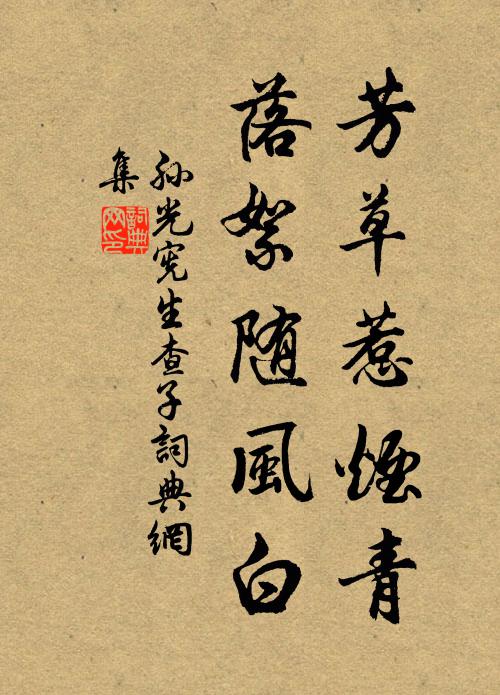 芳草惹煙青
落絮随風白
孙光宪生查子詞典網
集
詞典网印